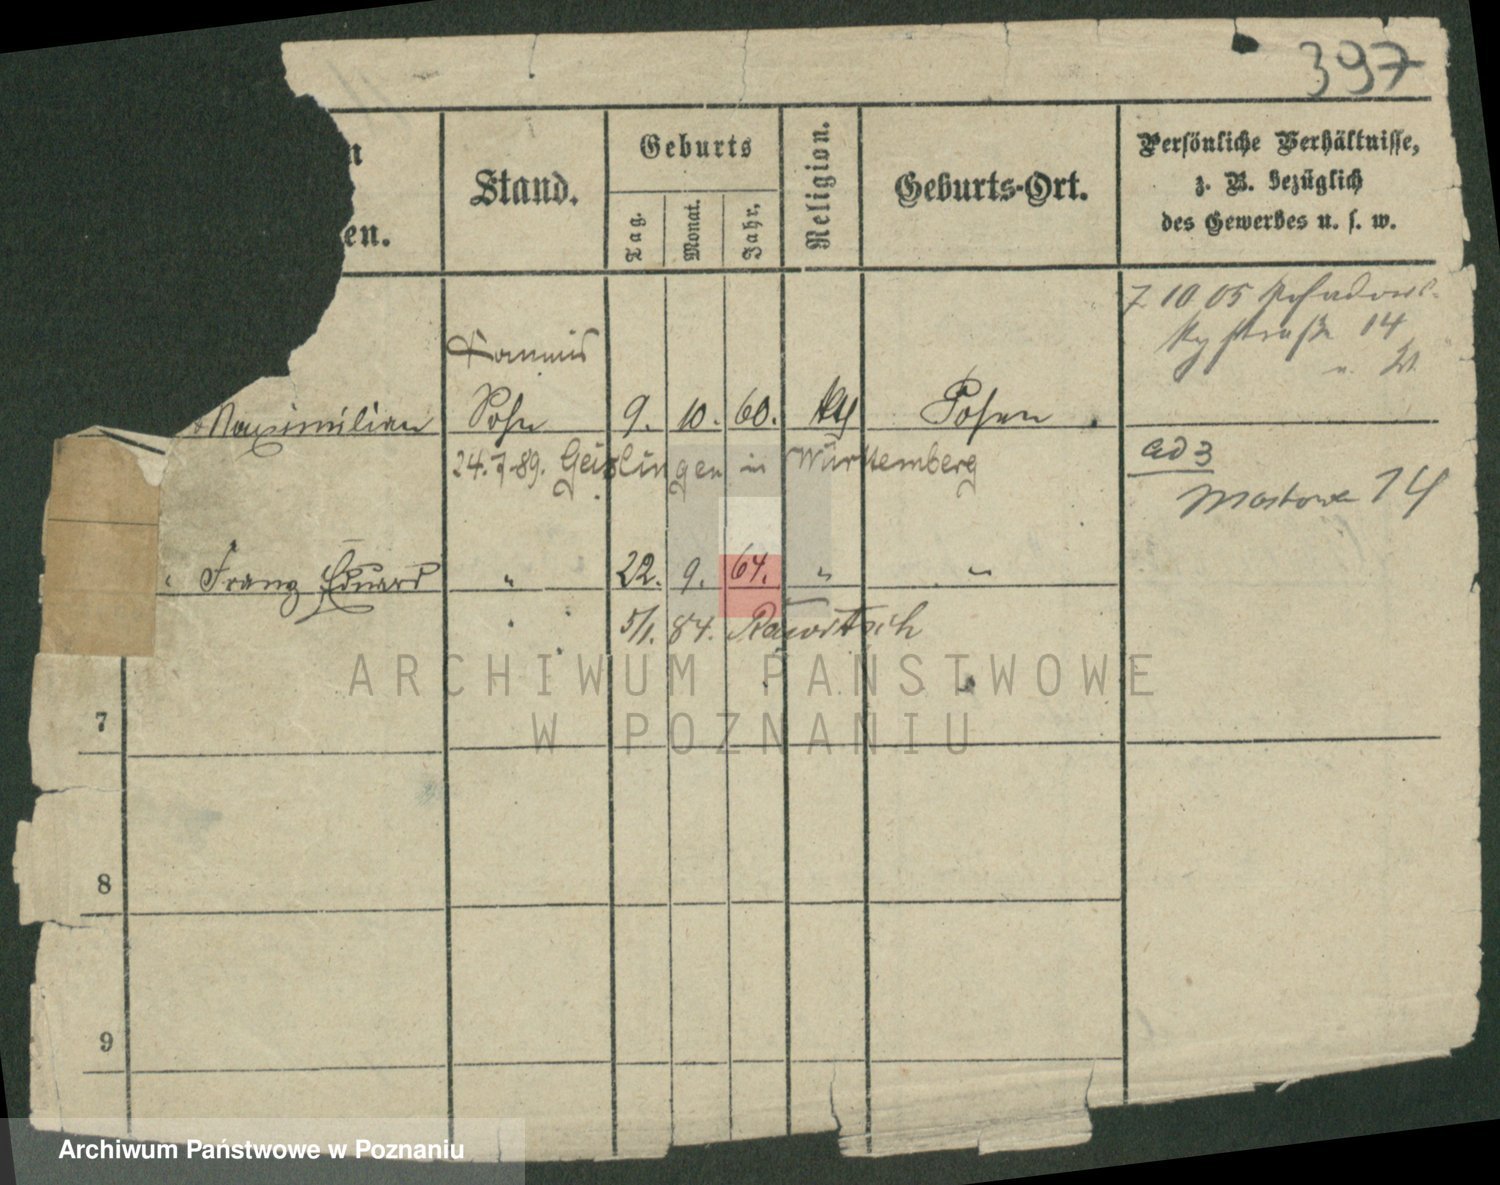 397
n
en.
Stand.
Geburts
Tag.
Monat.
Jahr.
Religion.
Geburts-Ort.
Persönliche Verhältnisse,
z. B. bezüglich
des Gewerbes u. s. w.
7 10 05
straße 14
Maximilian Sohn 9. 10. 60. Posen
24. 7. 89. Geislingen in Württemberg
ad 3
Mostowa 14
" Franz Eduard " 22. 9. 64. " "
5/1. 84. Rawitsch
ARCHIWUM PAŃSTWOWE
W POZNANIU
7
8
9
Archiwum Państwowe w Poznaniu